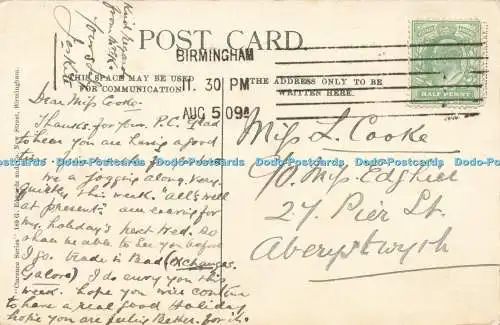 POST CARD.
THIS SPACE MAY BE USED
FOR COMMUNICATION
THE ADDRESS ONLY TO BE
WRITTEN HERE.
BIRMINGHAM
11. 30 PM
AUG 5 09
HALF PENNY
Kind Regards
from
Yours
Dear Miss Cooke.
Thanks for your P.C. Glad
to hear you are having a good
We a Jogging along very
quietly this week. "all's well
at present". am leaving for
my holiday's next Wed. so
shan be able to see you before
I go. trade is Bad (Exchanges
Galore) I do envy you this
week. hope you will continue
to have a real good Holiday
hope you are feeling Better for it.
Miss L. Cooke
c/o Miss Edghill
27 Pier St.
Aberystwyth
"Clarence Series" 188 G. New Street, Birmingham.
Dodo-Postcards Dodo-Postcards Dodo-Postcards Dodo-Postcards Dodo-Postcards Dodo-Postcards